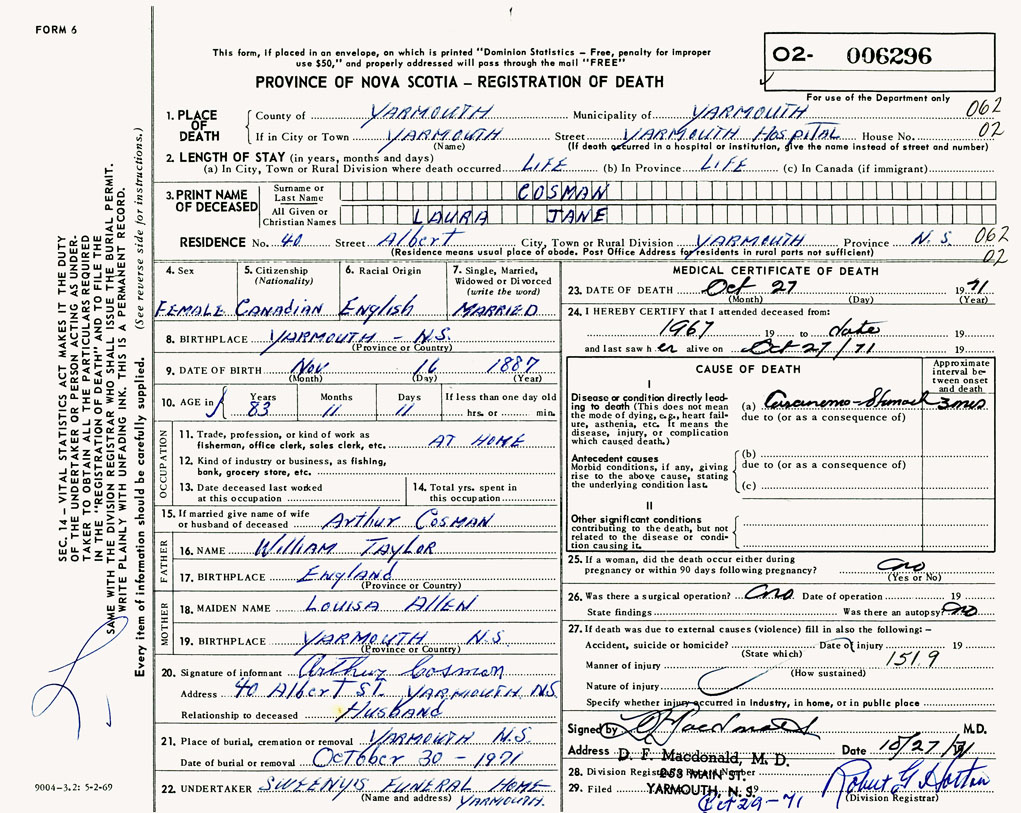 FORM 6
This form, if placed in an envelope, on which is printed "Dominion Statistics – Free, penalty for improper
use $50," and properly addressed will pass through the mail "FREE"
PROVINCE OF NOVA SCOTIA – REGISTRATION OF DEATH
02- 006296
For use of the Department only
062
02
1. PLACE OF DEATH
County of YARMOUTH Municipality of YARMOUTH
If in City or Town YARMOUTH Street YARMOUTH HOSPITAL House No.
(Name) (If death occurred in a hospital or institution, give the name instead of street and number)
2. LENGTH OF STAY (in years, months and days)
(a) In City, Town or Rural Division where death occurred LIFE (b) In Province LIFE (c) In Canada (if immigrant)
3. PRINT NAME OF DECEASED
Surname or Last Name COSMAN
All Given or Christian Names LAURA JANE
RESIDENCE No. 40 Street Albert City, Town or Rural Division YARMOUTH Province N.S. 062
(Residence means usual place of abode. Post Office Address for residents in rural parts not sufficient) 02
4. Sex FEMALE
5. Citizenship (Nationality) Canadian
6. Racial Origin English
7. Single, Married, Widowed or Divorced (write the word) MARRIED
8. BIRTHPLACE YARMOUTH - N.S.
(Province or Country)
9. DATE OF BIRTH Nov 16 1887
(Month) (Day) (Year)
10. AGE in Years 83 Months 11 Days 11 If less than one day old hrs. or min.
OCCUPATION
11. Trade, profession, or kind of work as
fisherman, office clerk, sales clerk, etc. AT HOME
12. Kind of industry or business, as fishing,
bank, grocery store, etc.
13. Date deceased last worked
at this occupation
14. Total yrs. spent in
this occupation
15. If married give name of wife
or husband of deceased Arthur COSMAN
FATHER
16. NAME William TAYLOR
17. BIRTHPLACE England
(Province or Country)
MOTHER
18. MAIDEN NAME LOUISA ALLEN
19. BIRTHPLACE YARMOUTH N.S.
(Province or Country)
20. Signature of informant Arthur Cosman
Address 40 Albert ST. YARMOUTH, N.S.
Relationship to deceased HUSBAND
21. Place of burial, cremation or removal YARMOUTH N.S.
Date of burial or removal OCTOBER 30 - 1971
22. UNDERTAKER SWEENYS FUNERAL HOME
(Name and address) YARMOUTH.
MEDICAL CERTIFICATE OF DEATH
23. DATE OF DEATH Oct 27 1971
(Month) (Day) (Year)
24. I HEREBY CERTIFY that I attended deceased from:
1967 19 to date 19
and last saw her alive on Oct 27/71 19
CAUSE OF DEATH
Approximate interval between onset and death
I
Disease or condition directly leading
to death (This does not mean
the mode of dying, e.g., heart failure,
asthenia, etc. It means the
disease, injury, or complication
which caused death.)
(a) Carcinoma - Stomach 3 mos
due to (or as a consequence of)
Antecedent causes
Morbid conditions, if any, giving
rise to the above cause, stating
the underlying condition last.
(b)
due to (or as a consequence of)
(c)
II
Other significant conditions
contributing to the death, but not
related to the disease or condition
causing it.
25. If a woman, did the death occur either during
pregnancy or within 90 days following pregnancy? no
(Yes or No)
26. Was there a surgical operation? no Date of operation 19
State findings Was there an autopsy? no
27. If death was due to external causes (violence) fill in also the following: –
Accident, suicide or homicide? Date of injury 19
(State which)
Manner of injury 151.9
(How sustained)
Nature of injury
Specify whether injury occurred in industry, in home, or in public place
Signed by D F Macdonald M.D.
Address D. F. Macdonald, M. D. Date 10/27/71
253 MAIN ST.
YARMOUTH, N. S.
28. Division Registrar's Record Number
29. Filed Oct 29-71 19
(Division Registrar)
SEC. 14 – VITAL STATISTICS ACT MAKES IT THE DUTY
OF THE UNDERTAKER OR PERSON ACTING AS UNDERTAKER
TO OBTAIN ALL THE PARTICULARS REQUIRED
IN THE "REGISTRATION OF DEATH" AND TO FILE THE
SAME WITH THE DIVISION REGISTRAR WHO SHALL ISSUE THE BURIAL PERMIT.
WRITE PLAINLY WITH UNFADING INK. THIS IS A PERMANENT RECORD.
Every item of information should be carefully supplied. (See reverse side for instructions.)
9004-3.2: 5-2-69